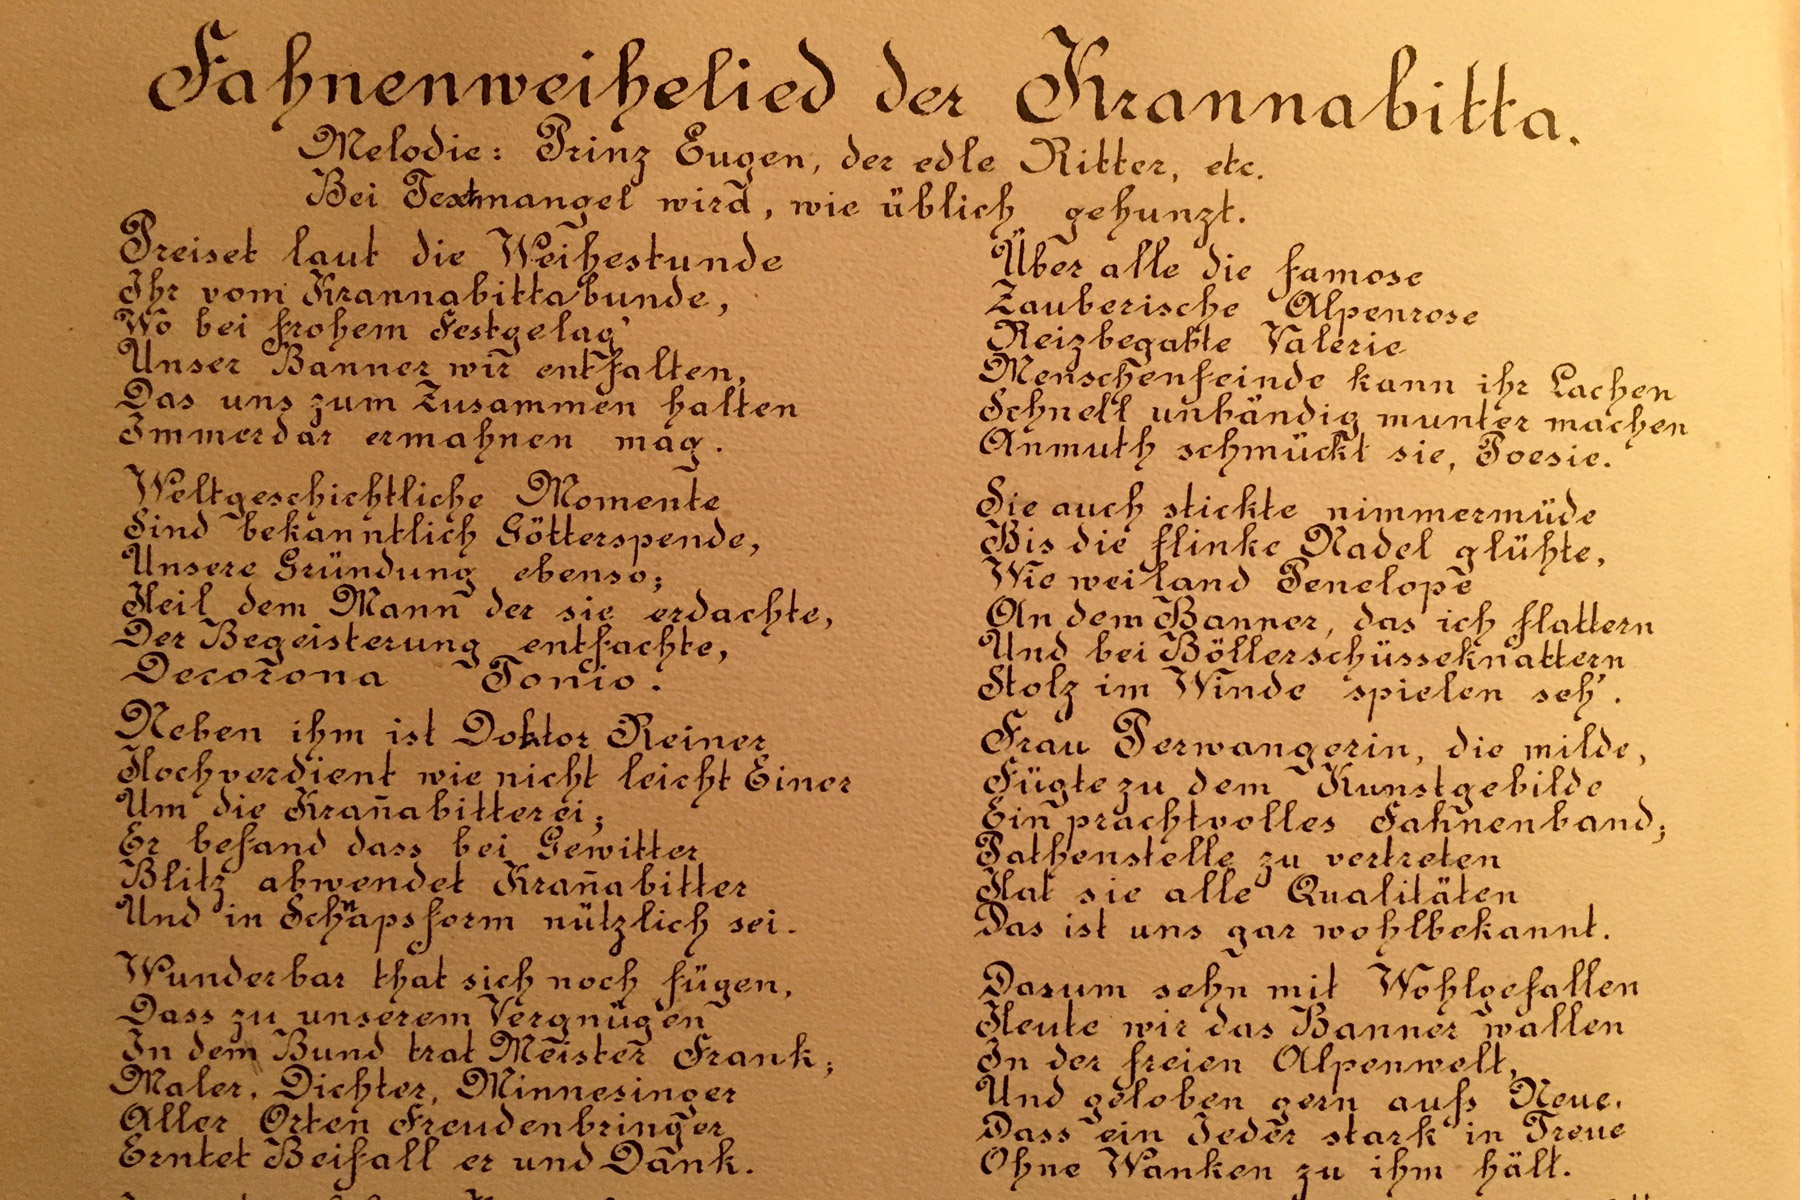 Fahnenweihelied der Krannabitta.
Melodie: Prinz Eugen, der edle Ritter, etc.
Bei Textmangel wird, wie üblich gehunzt.
Preiset laut die Weihestunde
Ihr vom Krannabittabunde,
Wo bei frohem Festgelag'
Unser Banner wir entfalten,
Das uns zum Zusammen halten
Immerdar ermahnen mag.
Weltgeschichtliche Momente
Sind bekanntlich Götterspende,
Unsere Gründung ebenso;
Heil dem Mann der sie erdachte,
Der Begeisterung entfachte,
Decorona Tonio.
Neben ihm ist Doktor Reiner
Hochverdient wie nicht leicht Einer
Um die Krañabitterei;
Er befand dass bei Gewitter
Blitz abwendet Krañabitter
Und in Schnapsform nützlich sei.
Wunderbar that sich noch fügen,
Dass zu unserem Vergnügen
In dem Bund trat Meister Frank;
Maler, Dichter, Minnesinger
Aller Orten Freudenbringer
Erntet Beifall er und Dank.
Über alle die famose
Zauberische Alpenrose
Reizbegabte Valerie
Menschenfeinde kann ihr Lachen
Schnell unbändig munter machen
Anmuth schmückt sie, Poesie.
Sie auch stickte nimmermüde
Bis die flinke Nadel glühte,
Wie weiland Penelope
An dem Banner, das ich flattern
Und bei Böllerschüsseknattern
Stolz im Winde spielen seh'.
Frau Perwangerin, die milde,
Fügte zu dem Kunstgebilde
Ein prachtvolles Fahnenband;
Pathenstelle zu vertreten
Hat sie alle Qualitäten
Das ist uns gar wohlbekannt.
Darum sehn mit Wohlgefallen
Heute wir das Banner wallen
In der freien Alpenwelt,
Und geloben gern aufs Neue,
Dass ein Jeder stark in Treue
Ohne Wanken zu ihm hält.